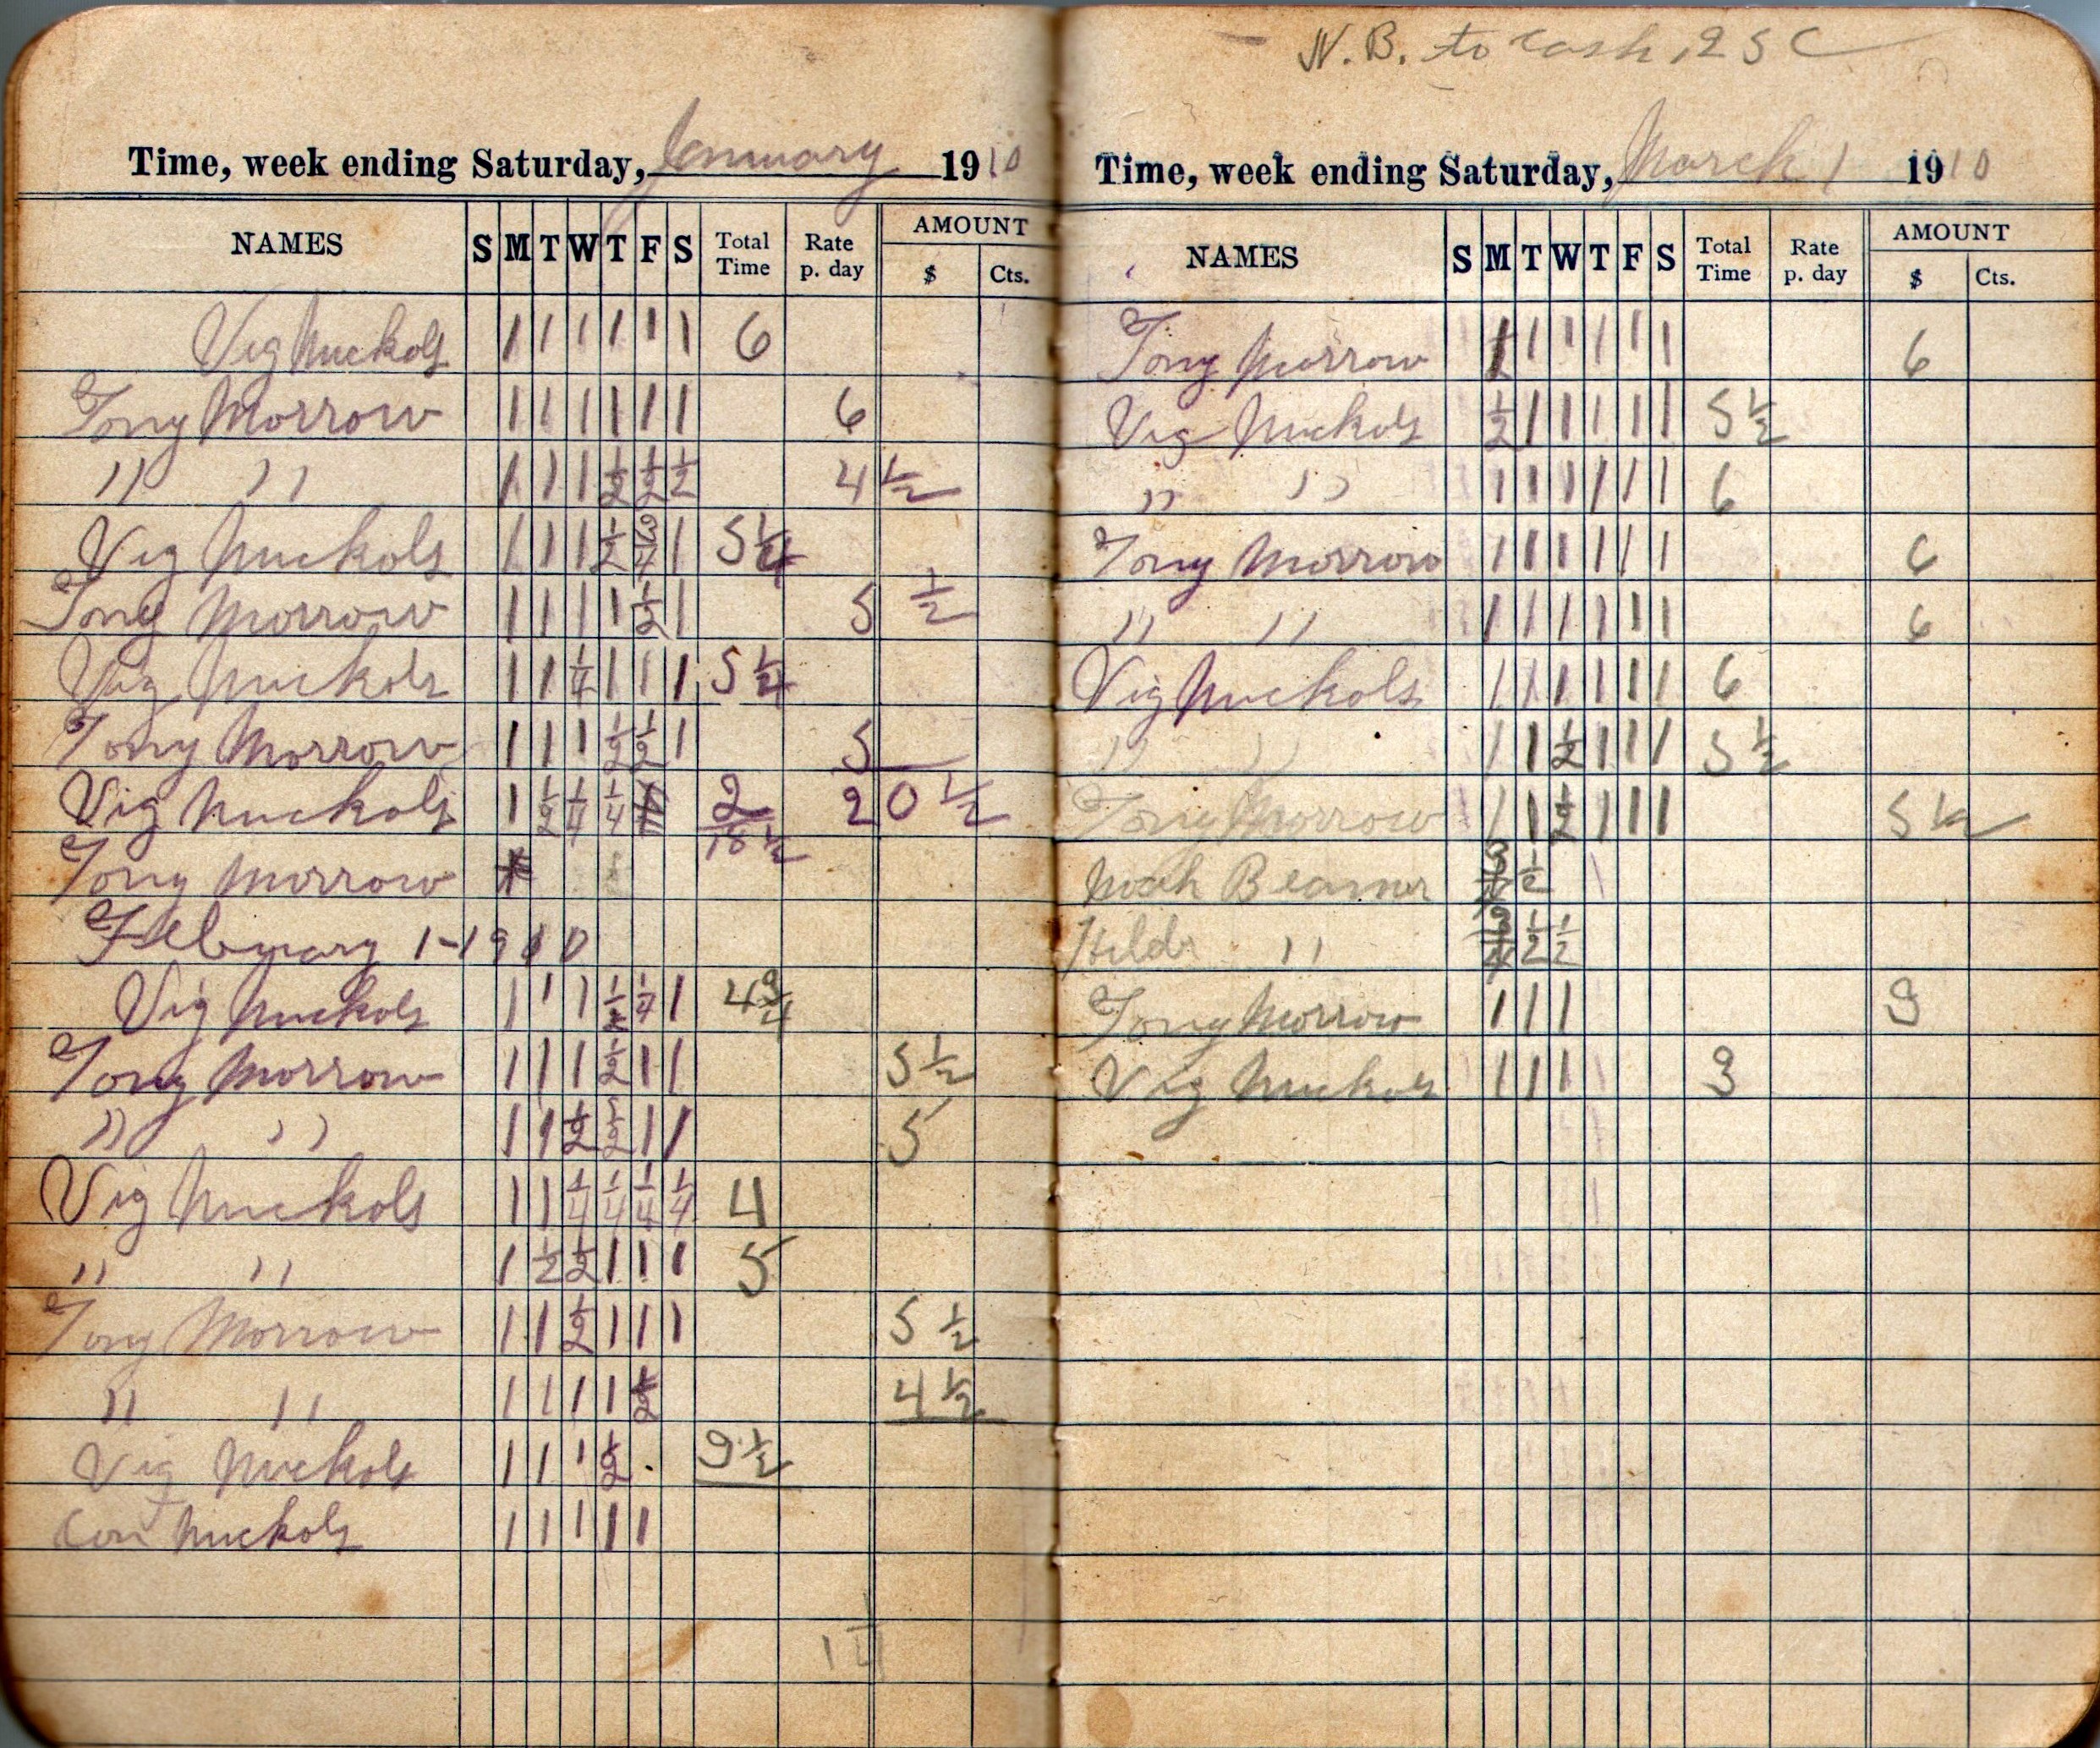 Time, week ending Saturday, January 1910
NAMES S M T W T F S Total Time Rate p. day AMOUNT $ Cts.
Vig Nuckols 1 1 1 1 1 1 6
Tony Morrow 1 1 1 1 1 1 6
" " 1 1 1 1/2 1/2 1/2 4 1/2
Vig Nuckols 1 1 1 1/2 3/4 1 5 1/4
Tony Morrow 1 1 1 1 1/2 1 5 1/2
Vig Nuckols 1 1 1/4 1 1 1 5 1/4
Tony Morrow 1 1 1 1/2 1/2 1 5
Vig Nuckols 1 1/2 1/4 1/4 2 20 1/2
18 1/2
Tony Morrow
February 1-1910
Vig Nuckols 1 1 1 1/2 1/4 1 4 3/4
Tony Morrow 1 1 1 1/2 1 1 5 1/2
" " 1 1 1/2 1/2 1 1 5
Vig Nuckols 1 1 1/4 1/4 1/4 1/4 4
" " 1 1/2 1/2 1 1 1 5
Tony Morrow 1 1 1/2 1 1 1 5 1/2
" " 1 1 1 1 1/2 4 1/2
Vig Nuckols 1 1 1 1/2 3 1/2
Con Nuckols 1 1 1 1 1
1 1/4
N. B. to cash, 25 C
Time, week ending Saturday, March 1 1910
NAMES S M T W T F S Total Time Rate p. day AMOUNT $ Cts.
Tony Morrow 1 1 1 1 1 1 6
Vig Nuckols 1/2 1 1 1 1 1 5 1/2
" " 1 1 1 1 1 1 6
Tony Morrow 1 1 1 1 1 1 6
" " 1 1 1 1 1 1 6
Vig Nuckols 1 1 1 1 1 1 6
" " 1 1 1/2 1 1 1 5 1/2
Tony Morrow 1 1 1/2 1 1 1 5 1/2
Noah Beamer 3/4 1/2
Hilda " 3/4 1/2 1/2
Tony Morrow 1 1 1 3
Vig Nuckols 1 1 1 3